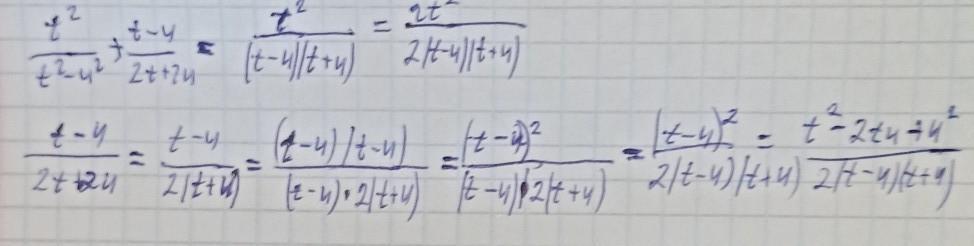 t²/(t²-u²) + (t-u)/(2t+2u) = t²/((t-u)(t+u)) = 2t²/(2(t-u)(t+u))
(t-u)/(2t+2u) = (t-u)/(2(t+u)) = (t-u)(t-u)/((t-u)·2(t+u)) = (t-u)²/((t-u)·2(t+u)) = (t-u)²/(2(t-u)(t+u)) = (t²-2tu+u²)/(2(t-u)(t+u))